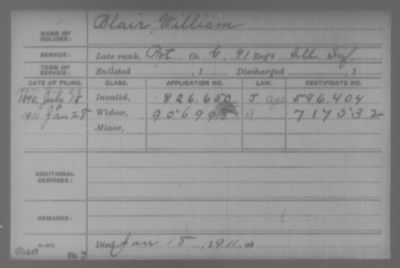 NAME OF SOLDIER: Blair, William
SERVICE: Late rank, Pvt Co. C, 91 Reg't Ill Inf.
TERM OF SERVICE: Enlisted , 1 Discharged , 1
DATE OF FILING. CLASS. APPLICATION NO. LAW. CERTIFICATE NO.
1890, July 18 Invalid, 826.650 J 596.404
1911 Jan 28 Widow, 956998 a 717532
Minor,
ADDITIONAL SERVICES:
REMARKS:
Died Jan 15, 1911, at